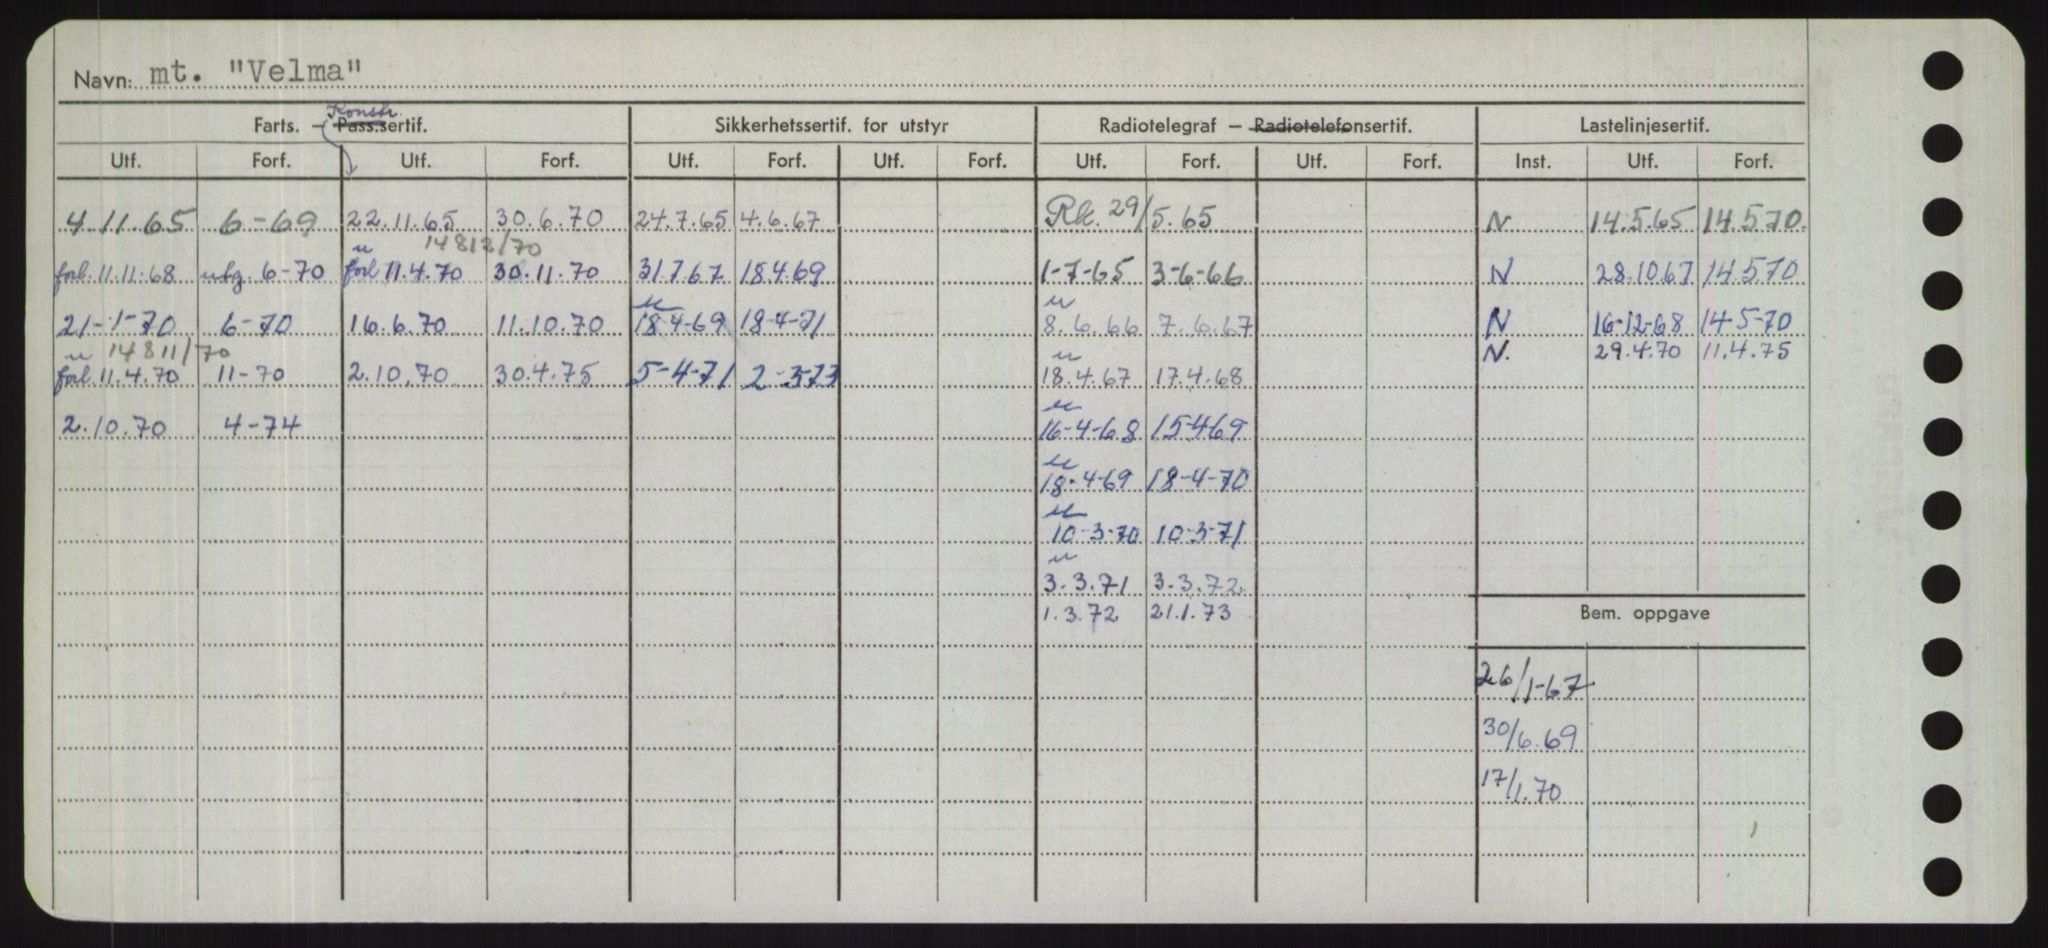 Navn: mt. "Velma"
Konstr.
Farts. — Pass.sertif. Sikkerhetssertif. for utstyr Radiotelegraf — Radiotelefonsertif. Lastelinjesertif.
Utf. Forf. Utf. Forf. Utf. Forf. Utf. Forf. Utf. Forf. Utf. Forf. Inst. Utf. Forf.
4.11.65 6-69 22.11.65 30.6.70 24.7.65 4.6.67 Rk. 29/5.65 N 14.5.65 14.5.70.
u 14812/70
forl. 11.11.68 utg. 6-70 forl 11.4.70 30.11.70 31.7.67 18.4.69 1-7-65 3-6-66 N 28.10.67 14.5.70
u u
21-1-70 6-70 16.6.70 11.10.70 18-4-69 18-4-71 8.6.66 7.6.67 N 16-12-68 14-5-70
u 14811/70 u N. 29.4.70 11.4.75
forl. 11.4.70 11-70 2.10.70 30.4.75 5-4-71 2-3-73 18.4.67 17.4.68
u
2.10.70 4-74 16-4-68 15-4-69
u
18-4-69 18-4-70
u
10-3-70 10-3-71
u
3.3.71 3.3.72
1.3.72 21.1.73
Bem. oppgave
26/1-67
30/6.69
17/1.70